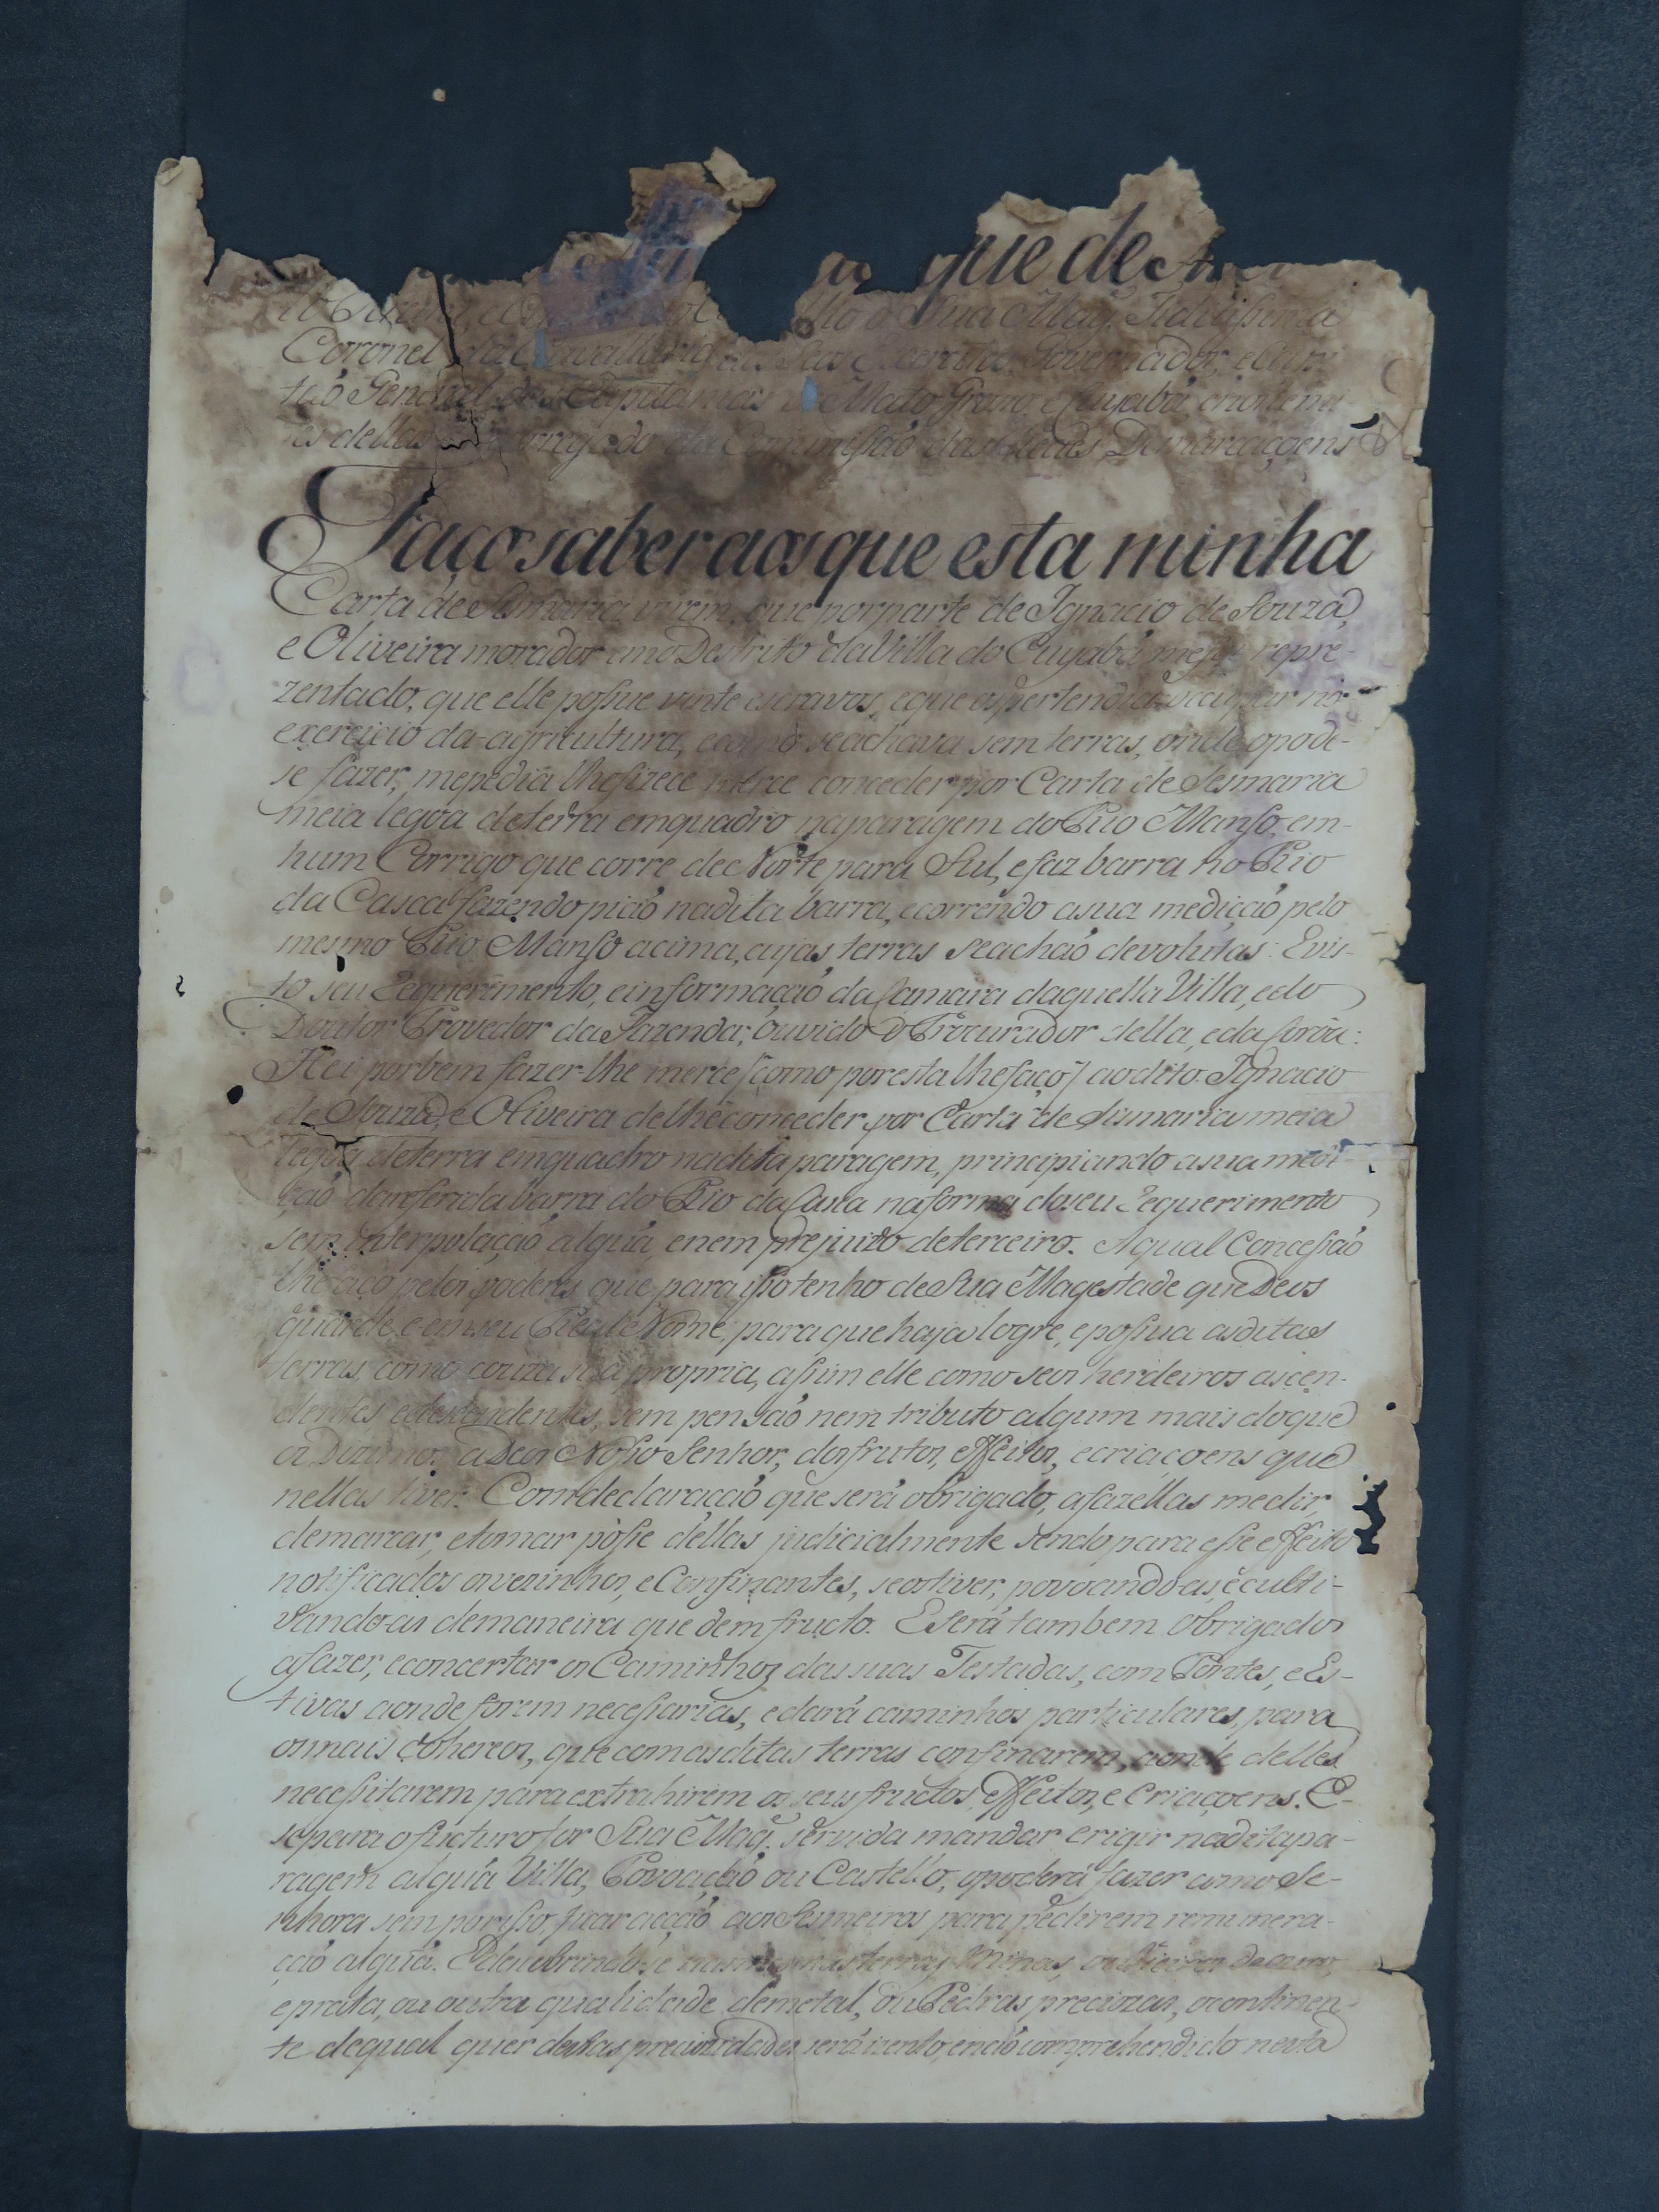 que de
Sua Mag.^e Fidelissima
Coronel da Governador, e Capi-
tão General das Capitanias de Mato Groso, e Cuyabá,
tes dellas da Commissão das Demarcaçoens
Faço saber aos que esta minha
Carta de Sismaria virem, que por parte de Ignacio de Souza,
e Oliveira morador em o Destrito da Villa do Cuyabá, me foi repre-
zentado, que elle possue vinte escravos, e que os pertendia occupar no
exercicio da agricultura, e como se achava sem terras, onde o pode-
se fazer, me pedia lhe fizece merce conceder por Carta de Sesmaria
meia legoa de terra em quadro na paragem do Rio Manso, em
hum Corrigo que corre de Norte para Sul, e faz barra no Rio
da Casca fazendo pião na dita barra, e correndo a sua medicção pelo
mesmo Rio Manso acima, cujas terras se achão devolutas: E vis-
to seu Requerimento, e informação da Camara daquella Villa, e do
Doutor Provedor da Fazenda; ouvido o Procurador della, e da Coroa:
Hei por bem fazer-lhe merce (como por esta lhe faço) ao dito Ignacio
de Souza, e Oliveira de lhe conceder por Carta de Sismaria meia
legoa de terra em quadro na dita paragem, principiando a sua medi-
ção da referida barra do Rio da Casca na forma do seu Requerimento
sem interpolação algũa, e nem prejuizo de terceiro. A qual Concessão
lhe faço pelos poderes que para isso tenho de Sua Magestade que Deos
guarde, e em seu Real Nome; para que haja logre, e possua as ditas
terras, como couza sua propria, assim elle como seus herdeiros ascen-
dentes, e descendentes, sem pensão nem tributo algum mais do que
os Dizimos a Deos Nosso Senhor, dos frutos, effeitos, e criaçoens que
nellas tiver. Com declaracção que será obrigado, a fazellas medir,
demarcar, e tomar pósse dellas judicialmente sendo para esse effeito
notificados os vezinhos, e Confinantes, se os tiver, povoando-as, e culti-
vando-as de maneira que dem fructo. E será tambem obrigado
a fazer, e concertar os Caminhos das suas Testadas, com Pontes, e Es-
tivas aonde forem necessarias, e dará caminhos particulares, para
os mais Co'hereos, que com as ditas terras confinarem, aonde delles
necessitarem para extrahirem os seus fructos, effeitos, e Criaçoens. E
se para o fucturo for Sua Mag.^e servida mandar erigir na dita pa-
ragem algũa Villa, Povoação ou Castello, o poderá fazer como Se-
nhora sem por isso ficar acção aos Sesmeiros para pedirem remunera-
ção algũa. E descubrindo-se nas mesmas terras Minas, ou Vieiros de ouro,
e prata, ou outra qualidade de metal, ou Pedras preciozas, o continen-
te de qual quer destas preciozidades será izento, e não comprehendido nesta